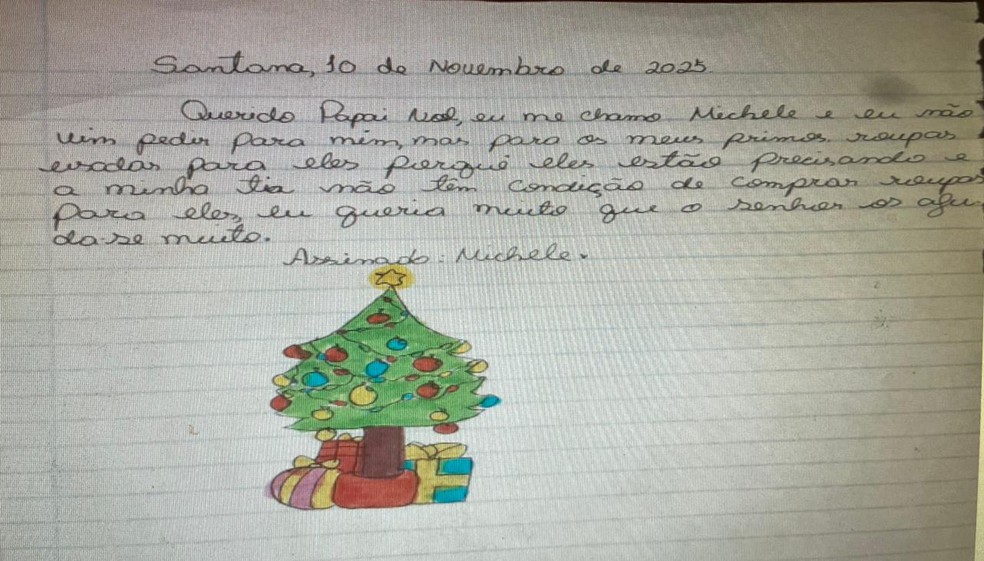 Santana, 10 de Novembro de 2025
Querido Papai Noel, eu me chamo Michele e eu não
vim pedir para mim, mas para os meus primos. roupas
usadas para eles porquê eles estão precisando e
a minha tia não têm condição de comprar roupas
para eles, eu queria muito que o senhor os aju-
da-se muito.
Assinado: Michele.